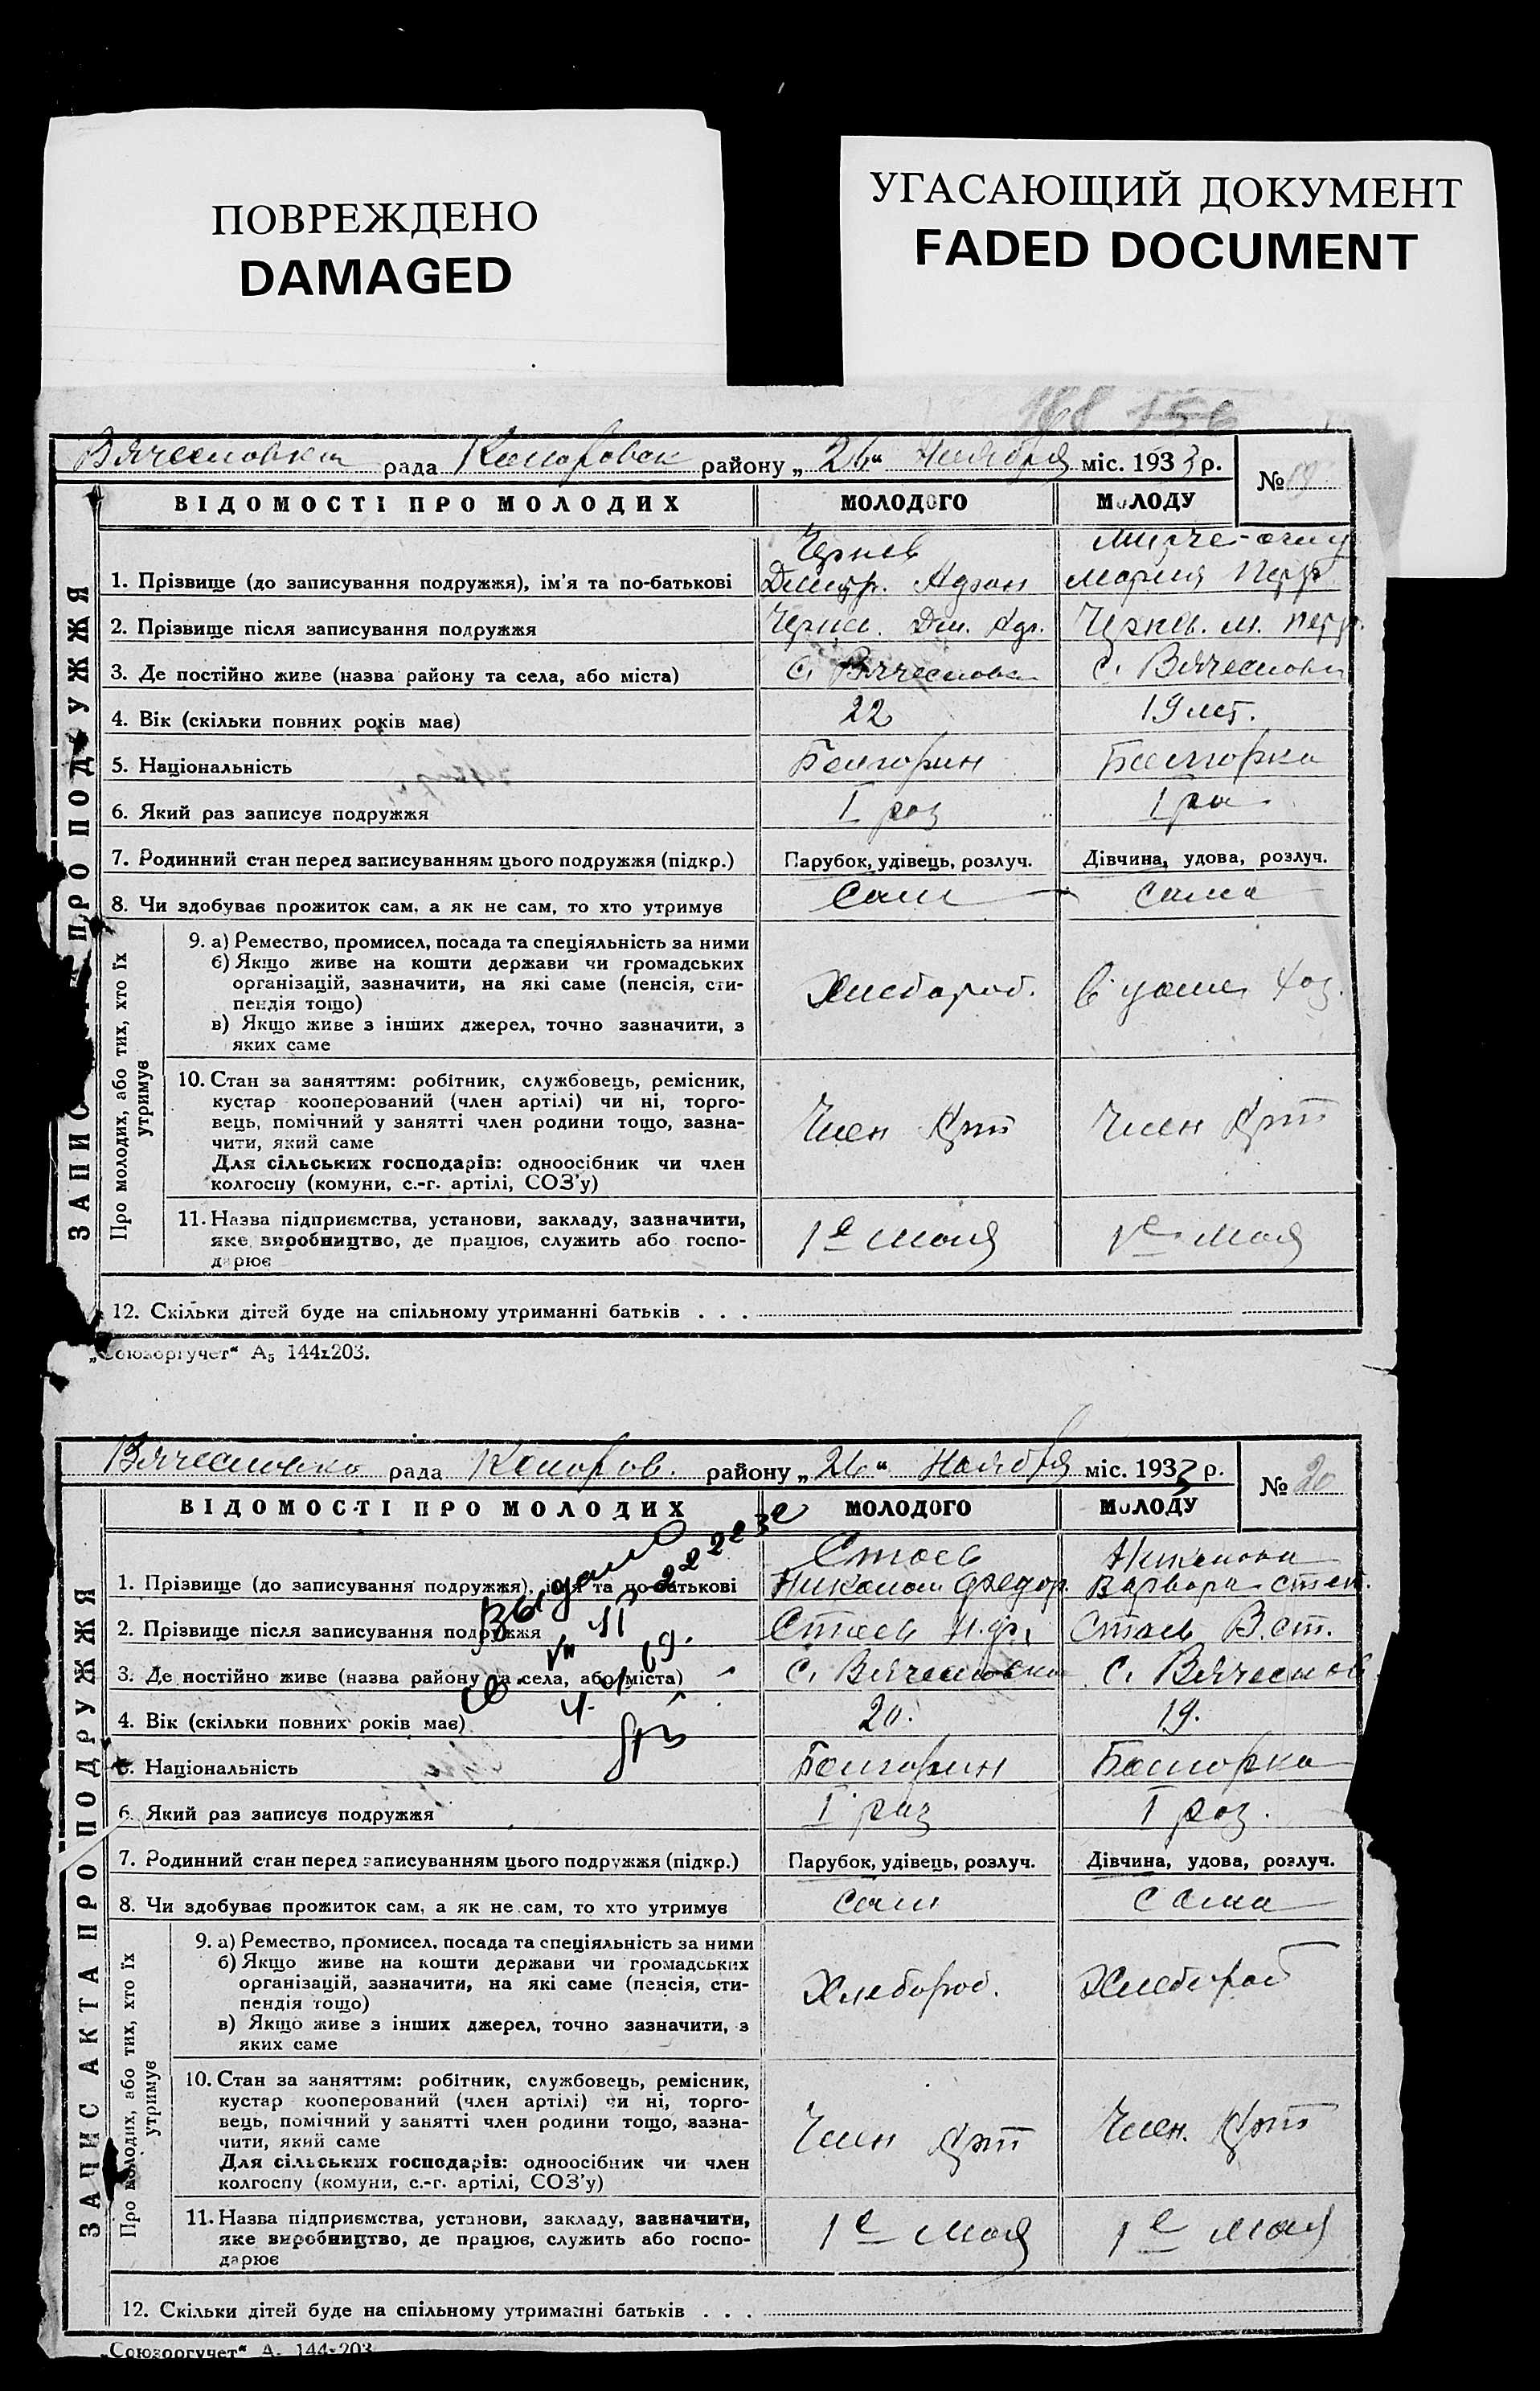 ПОВРЕЖДЕНО
DAMAGED
УГАСАЮЩИЙ ДОКУМЕНТ
FADED DOCUMENT
168 156
Вячесловка рада району „26“ Ноября міс. 1933 р.
№ 19
ВІДОМОСТІ ПРО МОЛОДИХ МОЛОДОГО МОЛОДУ
ЗАПИС ПРО ПОДРУЖЖЯ
Чернев
1. Прізвище (до записування подружжя), ім'я та по-батькові Дмитр. Мария Петр.
2. Прізвище після записування подружжя Чернев. Дм. Чернев. М. Петр.
3. Де постійно живе (назва району та села, або міста) С. Вячесловка С. Вячесловка
4. Вік (скільки повних років має) 22 19 лет.
5. Національність Болгарин Болгарка
6. Який раз записує подружжя I раз I раз
7. Родинний стан перед записуванням цього подружжя (підкр.) Парубок, удівець, розлуч. Дівчина, удова, розлуч.
8. Чи здобуває прожиток сам, а як не сам, то хто утримує Сам Сама
Про молодих, або тих, хто їх утримує
9. а) Ремество, промисел, посада та спеціяльність за ними
б) Якщо живе на кошти держави чи громадських
організацій, зазначити, на які саме (пенсія, сти-
пендія тощо)
в) Якщо живе з інших джерел, точно зазначити, з
яких саме
Хлебороб. В хоз.
10. Стан за заняттям: робітник, службовець, ремісник,
кустар кооперований (член артілі) чи ні, торго-
вець, помічний у занятті член родини тощо, зазна-
чити, який саме
Для сільських господарів: одноосібник чи член
колгоспу (комуни, с.-г. артілі, СОЗ'у)
Член Арт Член Арт
11. Назва підприємства, установи, закладу, зазначити,
яке виробництво, де працює, служить або госпо-
дарює
1е Мая 1е Мая
12. Скільки дітей буде на спільному утриманні батьків . . .
„Союзоргучет“ А₅ 144х203.
Вячесловка рада району „26“ Ноября міс. 1933 р.
№ 20
ВІДОМОСТІ ПРО МОЛОДИХ МОЛОДОГО МОЛОДУ
ЗАПИС АКТА ПРО ПОДРУЖЖЯ
Стоев
1. Прізвище (до записування подружжя), ім'я та по-батькові Николай Федор. Варвара Степ.
2. Прізвище після записування подружжя Стоев Н. Ф. Стоев В. Ст.
3. Де постійно живе (назва району та села, або міста) С. Вячесловка С. Вячеслов
4. Вік (скільки повних років має) 20. 19.
5. Національність Болгарин Болгарка
6. Який раз записує подружжя I раз I раз.
7. Родинний стан перед записуванням цього подружжя (підкр.) Парубок, удівець, розлуч. Дівчина, удова, розлуч.
8. Чи здобуває прожиток сам, а як не сам, то хто утримує Сам Сама
Выдано
Про молодих, або тих, хто їх утримує
9. а) Ремество, промисел, посада та спеціяльність за ними
б) Якщо живе на кошти держави чи громадських
організацій, зазначити, на які саме (пенсія, сти-
пендія тощо)
в) Якщо живе з інших джерел, точно зазначити, з
яких саме
Хлебороб. Хлебороб
10. Стан за заняттям: робітник, службовець, ремісник,
кустар кооперований (член артілі) чи ні, торго-
вець, помічний у занятті член родини тощо, зазна-
чити, який саме
Для сільських господарів: одноосібник чи член
колгоспу (комуни, с.-г. артілі, СОЗ'у)
Член Арт Член. Арт
11. Назва підприємства, установи, закладу, зазначити,
яке виробництво, де працює, служить або госпо-
дарює
1е Мая 1е Мая
12. Скільки дітей буде на спільному утриманні батьків . . .
„Союзоргучет“ А₅ 144х203